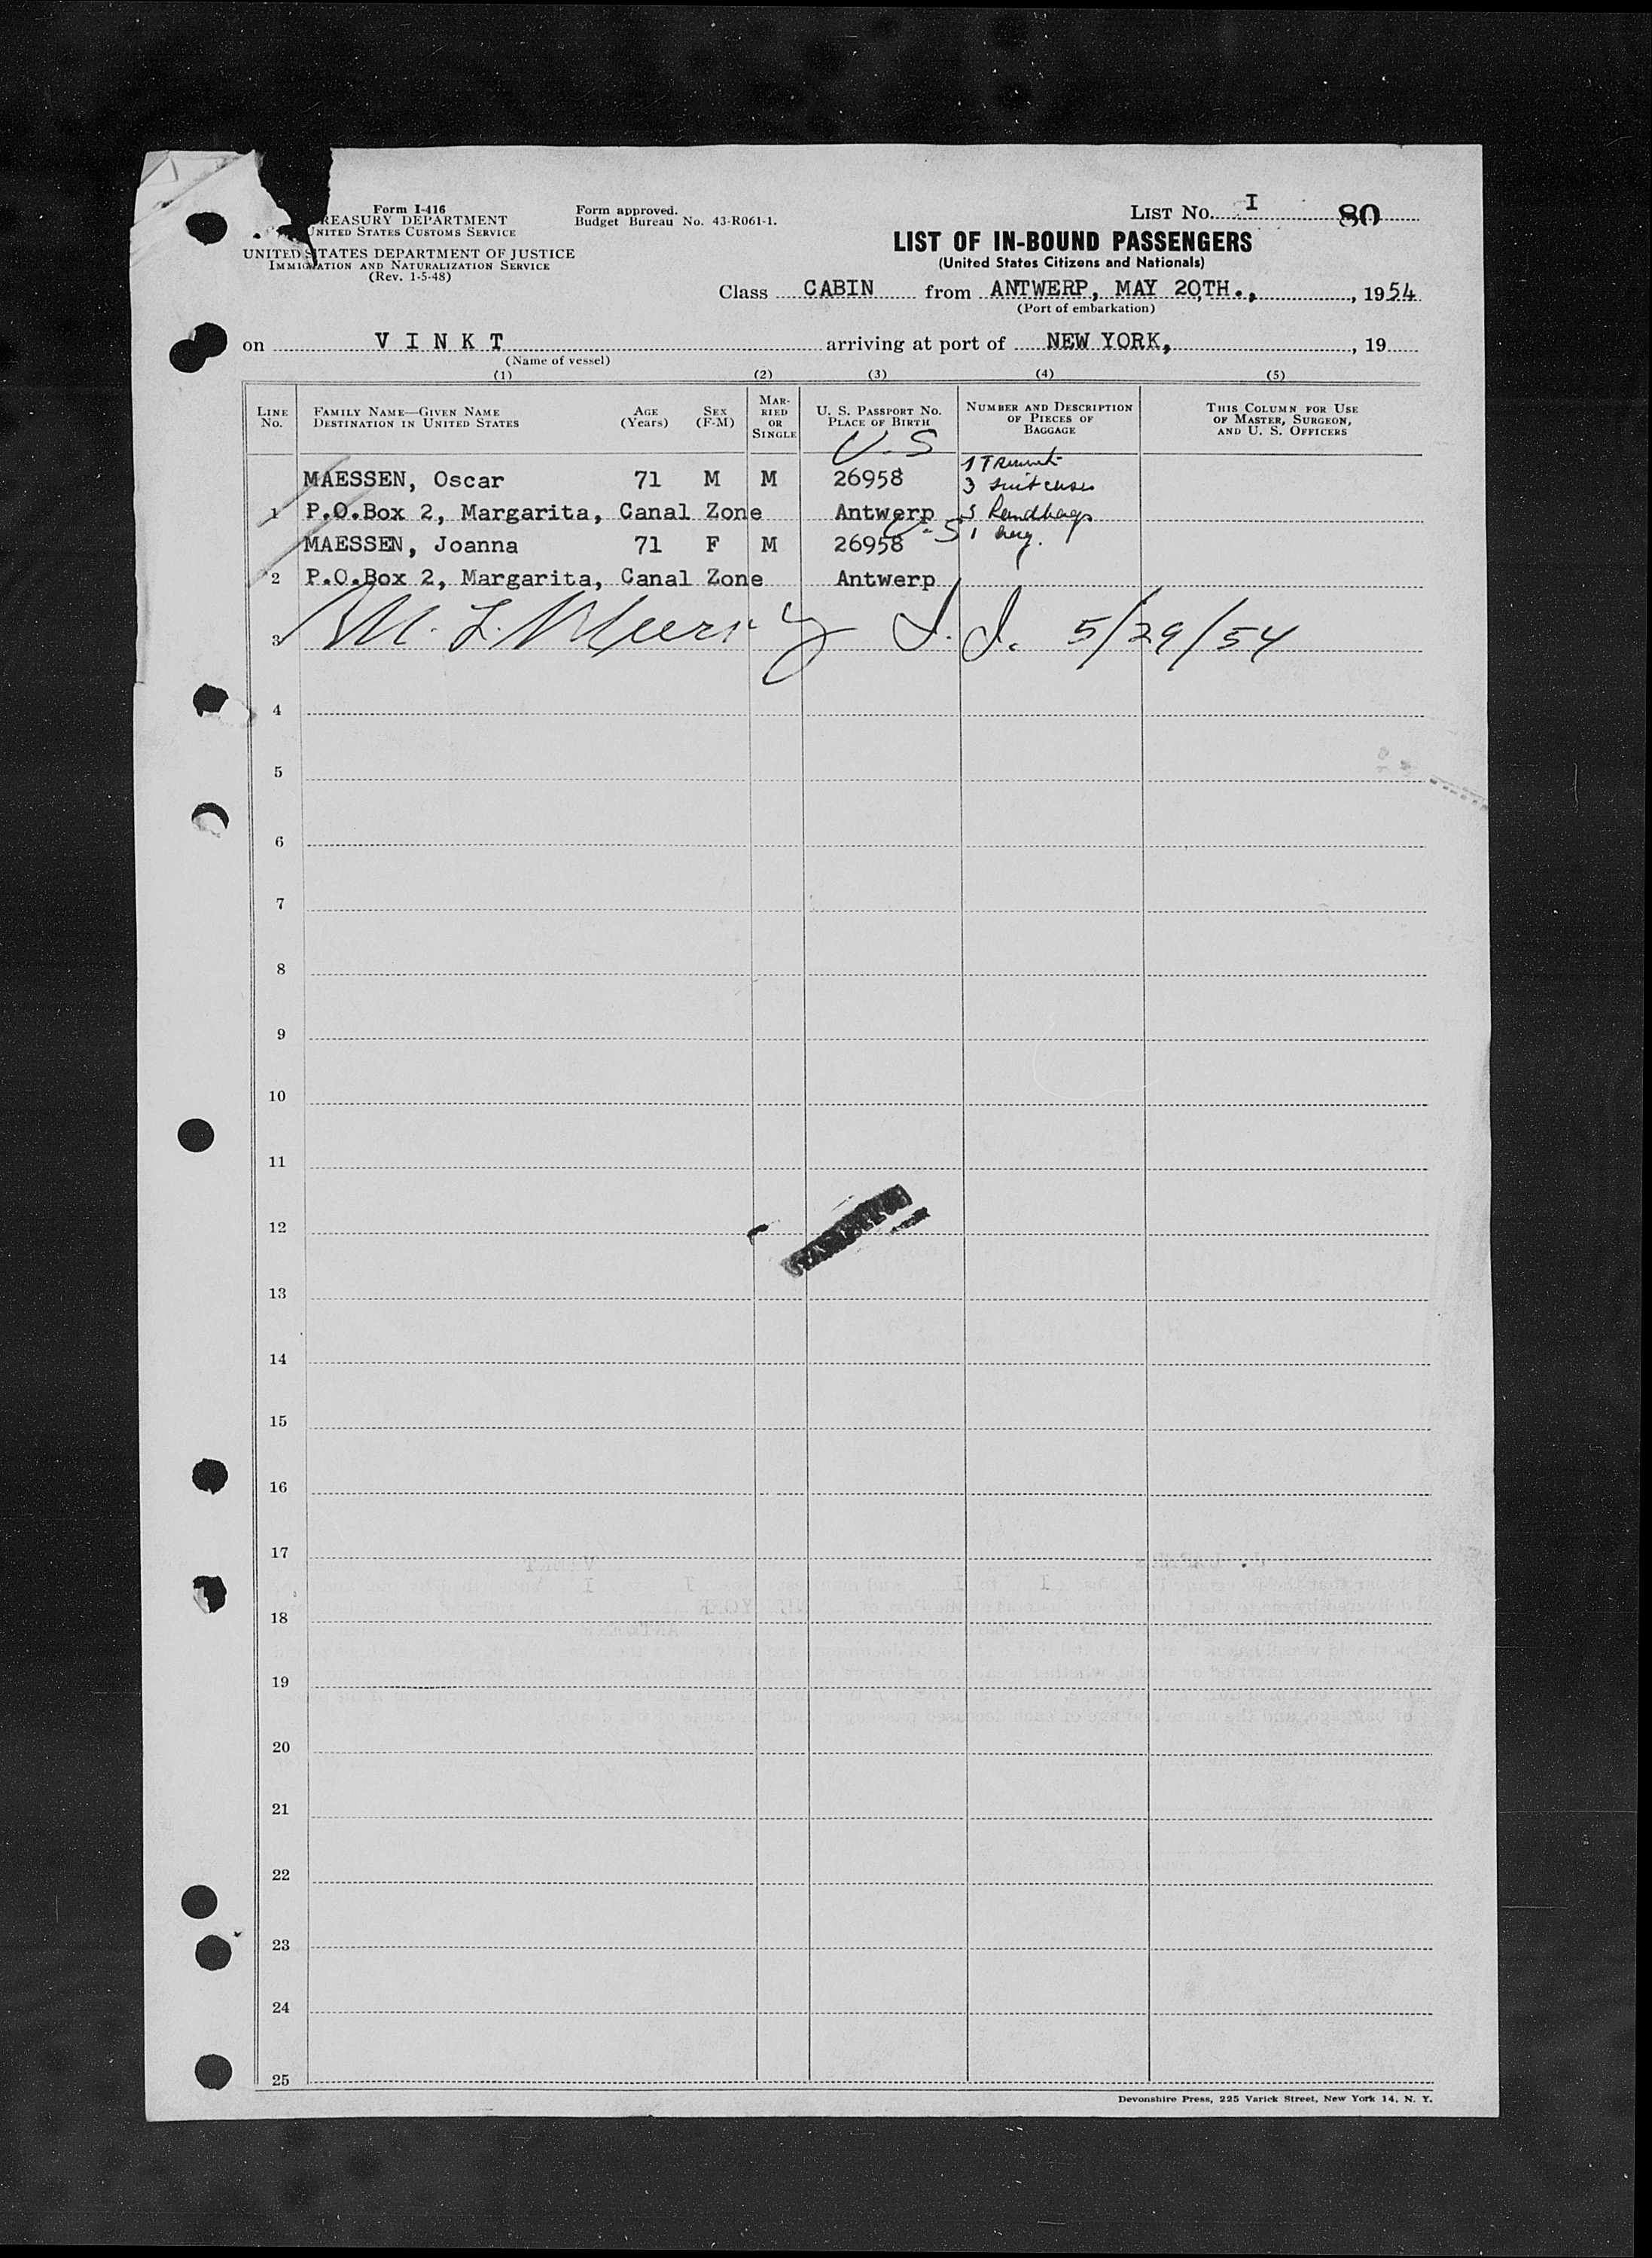 Form I-416
TREASURY DEPARTMENT
UNITED STATES CUSTOMS SERVICE
UNITED STATES DEPARTMENT OF JUSTICE
IMMIGRATION AND NATURALIZATION SERVICE
(Rev. 1-5-48)
Form approved.
Budget Bureau No. 43-R061-1.
LIST NO. I 80
LIST OF IN-BOUND PASSENGERS
(United States Citizens and Nationals)
Class CABIN from ANTWERP, MAY 20TH., , 1954
(Port of embarkation)
on V I N K T arriving at port of NEW YORK, , 19
(Name of vessel)
(1) (2) (3) (4) (5)
LINE No.
FAMILY NAME—GIVEN NAME
DESTINATION IN UNITED STATES
AGE (Years)
SEX (F-M)
MARRIED OR SINGLE
U. S. PASSPORT NO.
PLACE OF BIRTH
NUMBER AND DESCRIPTION OF PIECES OF BAGGAGE
THIS COLUMN FOR USE OF MASTER, SURGEON, AND U. S. OFFICERS
U.S
MAESSEN, Oscar 71 M M 26958 1 Trunk
3 suitcases
1 P.O.Box 2, Margarita, Canal Zone Antwerp 3 Handbags
U.S
MAESSEN, Joanna 71 F M 26958 1
2 P.O.Box 2, Margarita, Canal Zone Antwerp
3 M. L. Murray I.I. 5/29/54
4
5
6
7
8
9
10
11
12
13
14
15
16
17
18
19
20
21
22
23
24
25
Devonshire Press, 225 Varick Street, New York 14, N. Y.